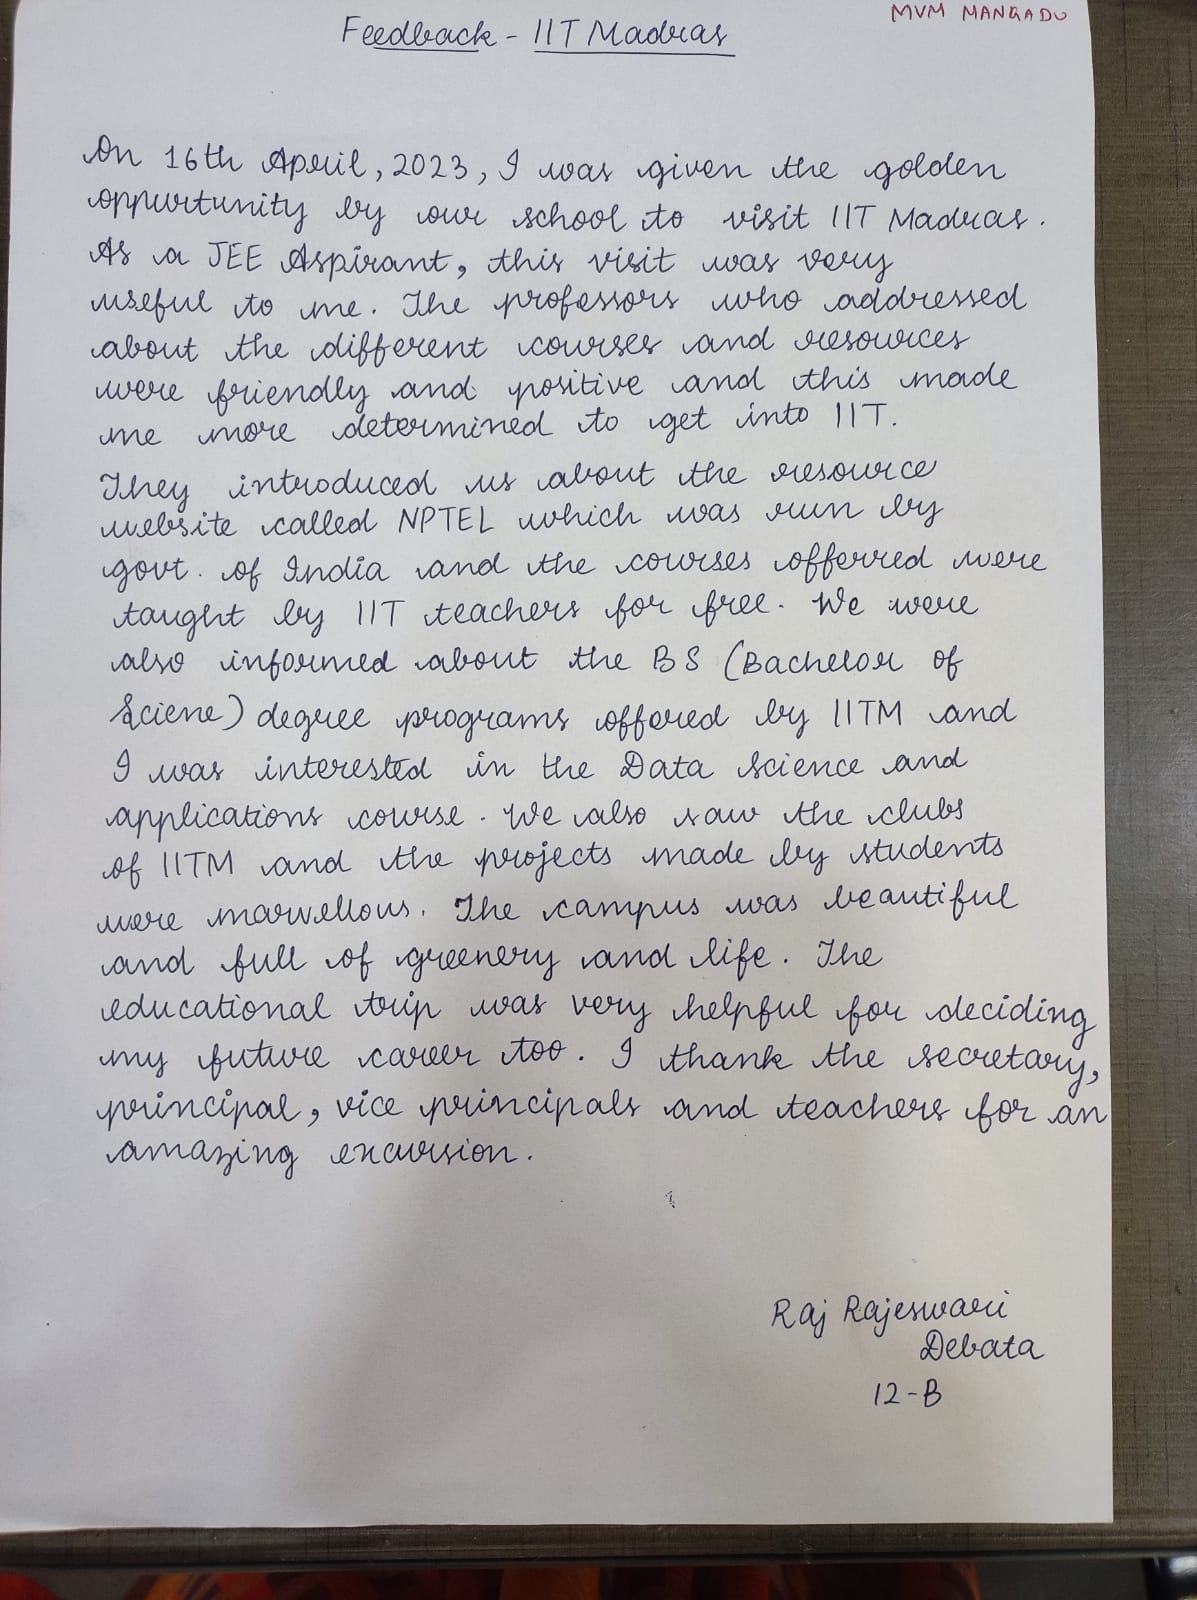 MVM MANGADU
Feedback - IIT Madras
On 16th April, 2023, I was given the golden
oppurtunity by our school to visit IIT Madras.
As a JEE Aspirant, this visit was very
useful to me. The professors who addressed
about the different courses and resources
were friendly and positive and this made
me more determined to get into IIT.
They introduced us about the resource
website called NPTEL which was run by
govt. of India and the courses offerred were
taught by IIT teachers for free. We were
also informed about the BS (Bachelor of
Sciene) degree programs offered by IITM and
I was interested in the Data science and
applications course. We also saw the clubs
of IITM and the projects made by students
were marvellous. The campus was beautiful
and full of greenery and life. The
educational trip was very helpful for deciding
my future career too. I thank the secretary,
principal, vice principals and teachers for an
amazing excursion.
Raj Rajeswari
Debata
12-B